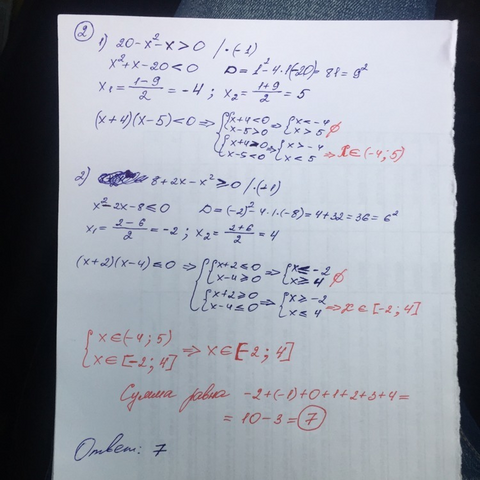 2
1) 20-x²-x>0 /·(-1)
x²+x-20<0 D=1²-4·1·(-20)=81=9²
x₁=(1-9)/2=-4; x₂=(1+9)/2=5
(x+4)(x-5)<0 ⇒ {x+4<0 ⇒ {x<-4
x-5>0 x>5 ∅
{x+4>0 ⇒ {x>-4
x-5<0 x<5 ⇒ x∈(-4;5)
2) 8+2x-x²≥0 /·(-1)
x²-2x-8≤0 D=(-2)²-4·1·(-8)=4+32=36=6²
x₁=(2-6)/2=-2; x₂=(2+6)/2=4
(x+2)(x-4)≤0 ⇒ {x+2≤0 ⇒ {x≤-2
x-4≥0 x≥4 ∅
{x+2≥0 ⇒ {x≥-2
x-4≤0 x≤4 ⇒ x∈[-2;4]
{x∈(-4;5)
x∈[-2;4] ⇒ x∈[-2;4]
Сумма равна -2+(-1)+0+1+2+3+4=
=10-3=7
Ответ: 7